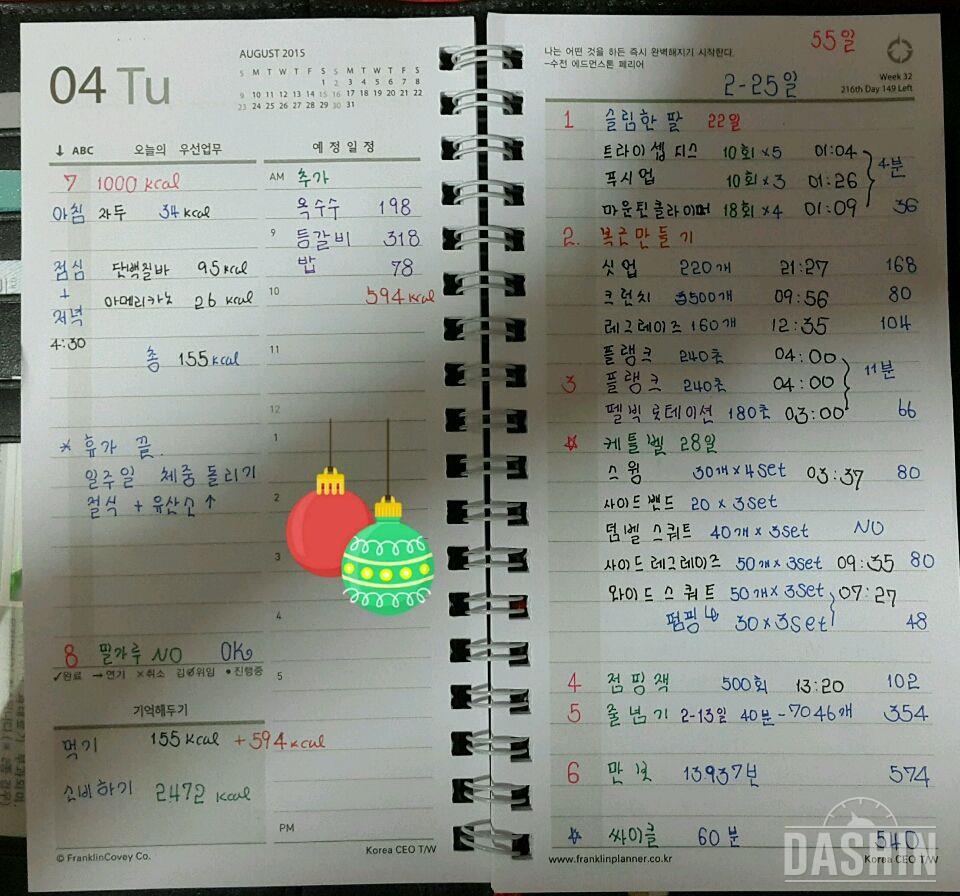 04 Tu
AUGUST 2015
S M T W T F S S M T W T F S
1 2 3 4 5 6 7 8
9 10 11 12 13 14 15 16 17 18 19 20 21 22
23 24 25 26 27 28 29 30 31
↓ ABC 오늘의 우선업무
7 1000 kcal
아침 자두 34 kcal
점심 단백질바 95 kcal
+ 아메리카노 26 kcal
저녁
4:30
총 155 kcal
* 휴가 끝.
일주일 체중 돌리기
절식 + 유산소 ↑
8 밀가루 NO OK
✓완료 →연기 ×취소 위임 •진행중
기억해두기
먹기 155 kcal + 594 kcal
소비하기 2472 kcal
© FranklinCovey Co.
예정일정
AM 추가
옥수수 198
9 등갈비 318
밥 78
10 594 kcal
11
12
1
2
3
4
5
PM
Korea CEO T/W
55일
나는 어떤 것을 하든 즉시 완벽해지기 시작한다.
-수전 에드먼스톤 페리어
2-25일
Week 32
216th Day 149 Left
1 슬림한 팔 22일
트라이셉 딥스 10회×5 01:04
푸시업 10회×3 01:26 4분
마운틴클라이머 18회×4 01:09 36
2. 복근만들기
싯업 220개 21:27 168
크런치 500개 09:56 80
레그레이즈 160개 12:35 104
플랭크 240초 04:00
3 플랭크 240초 04:00 11분
펠빅 로테이션 180초 03:00 66
☆ 케틀벨 28일
스윙 30개×4set 03:37 80
사이드밴드 20×3set
덤벨 스쿼트 40개×3set NO
사이드레그레이즈 50개×3set 09:35 80
와이드스쿼트 50개×3set 07:27
펌핑 ↳ 30×3set 48
4 점핑잭 500회 13:20 102
5 줄넘기 2-13일 40분-7046개 354
6 만보 13937보 574
☆ 싸이클 60분 540
www.franklinplanner.co.kr
Korea CEO T/W
DASHIN